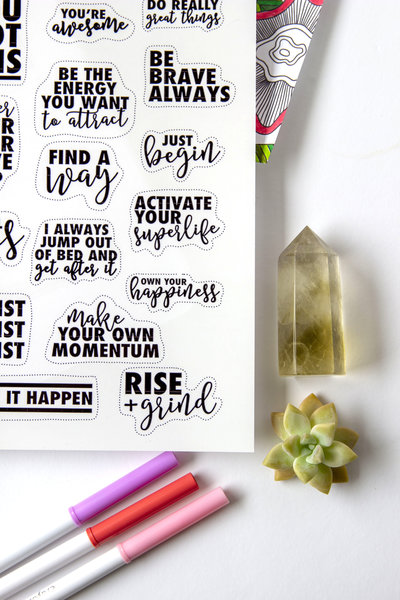 U
OT
IS
YOU'RE
awesome
DO REALLY
great things
BE THE
ENERGY
YOU WANT
to attract
BE
BRAVE
ALWAYS
FIND A
Way
JUST
begin
I ALWAYS
JUMP OUT
OF BED AND
get after it
ACTIVATE
YOUR
superlife
OWN YOUR
happiness
IST
IST
IST
make
YOUR OWN
MOMENTUM
IT HAPPEN
RISE
+grind